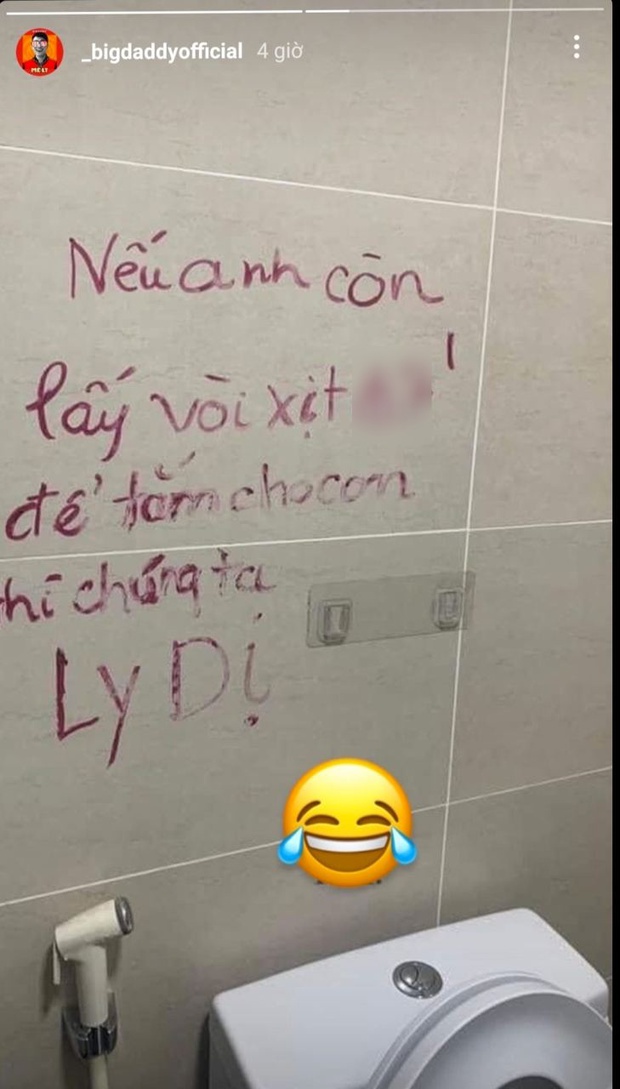 _bigdaddyofficial 4 giờ
Nếu anh còn
lấy vòi xịt
để tắm cho con
hì chúng ta
Ly Dị